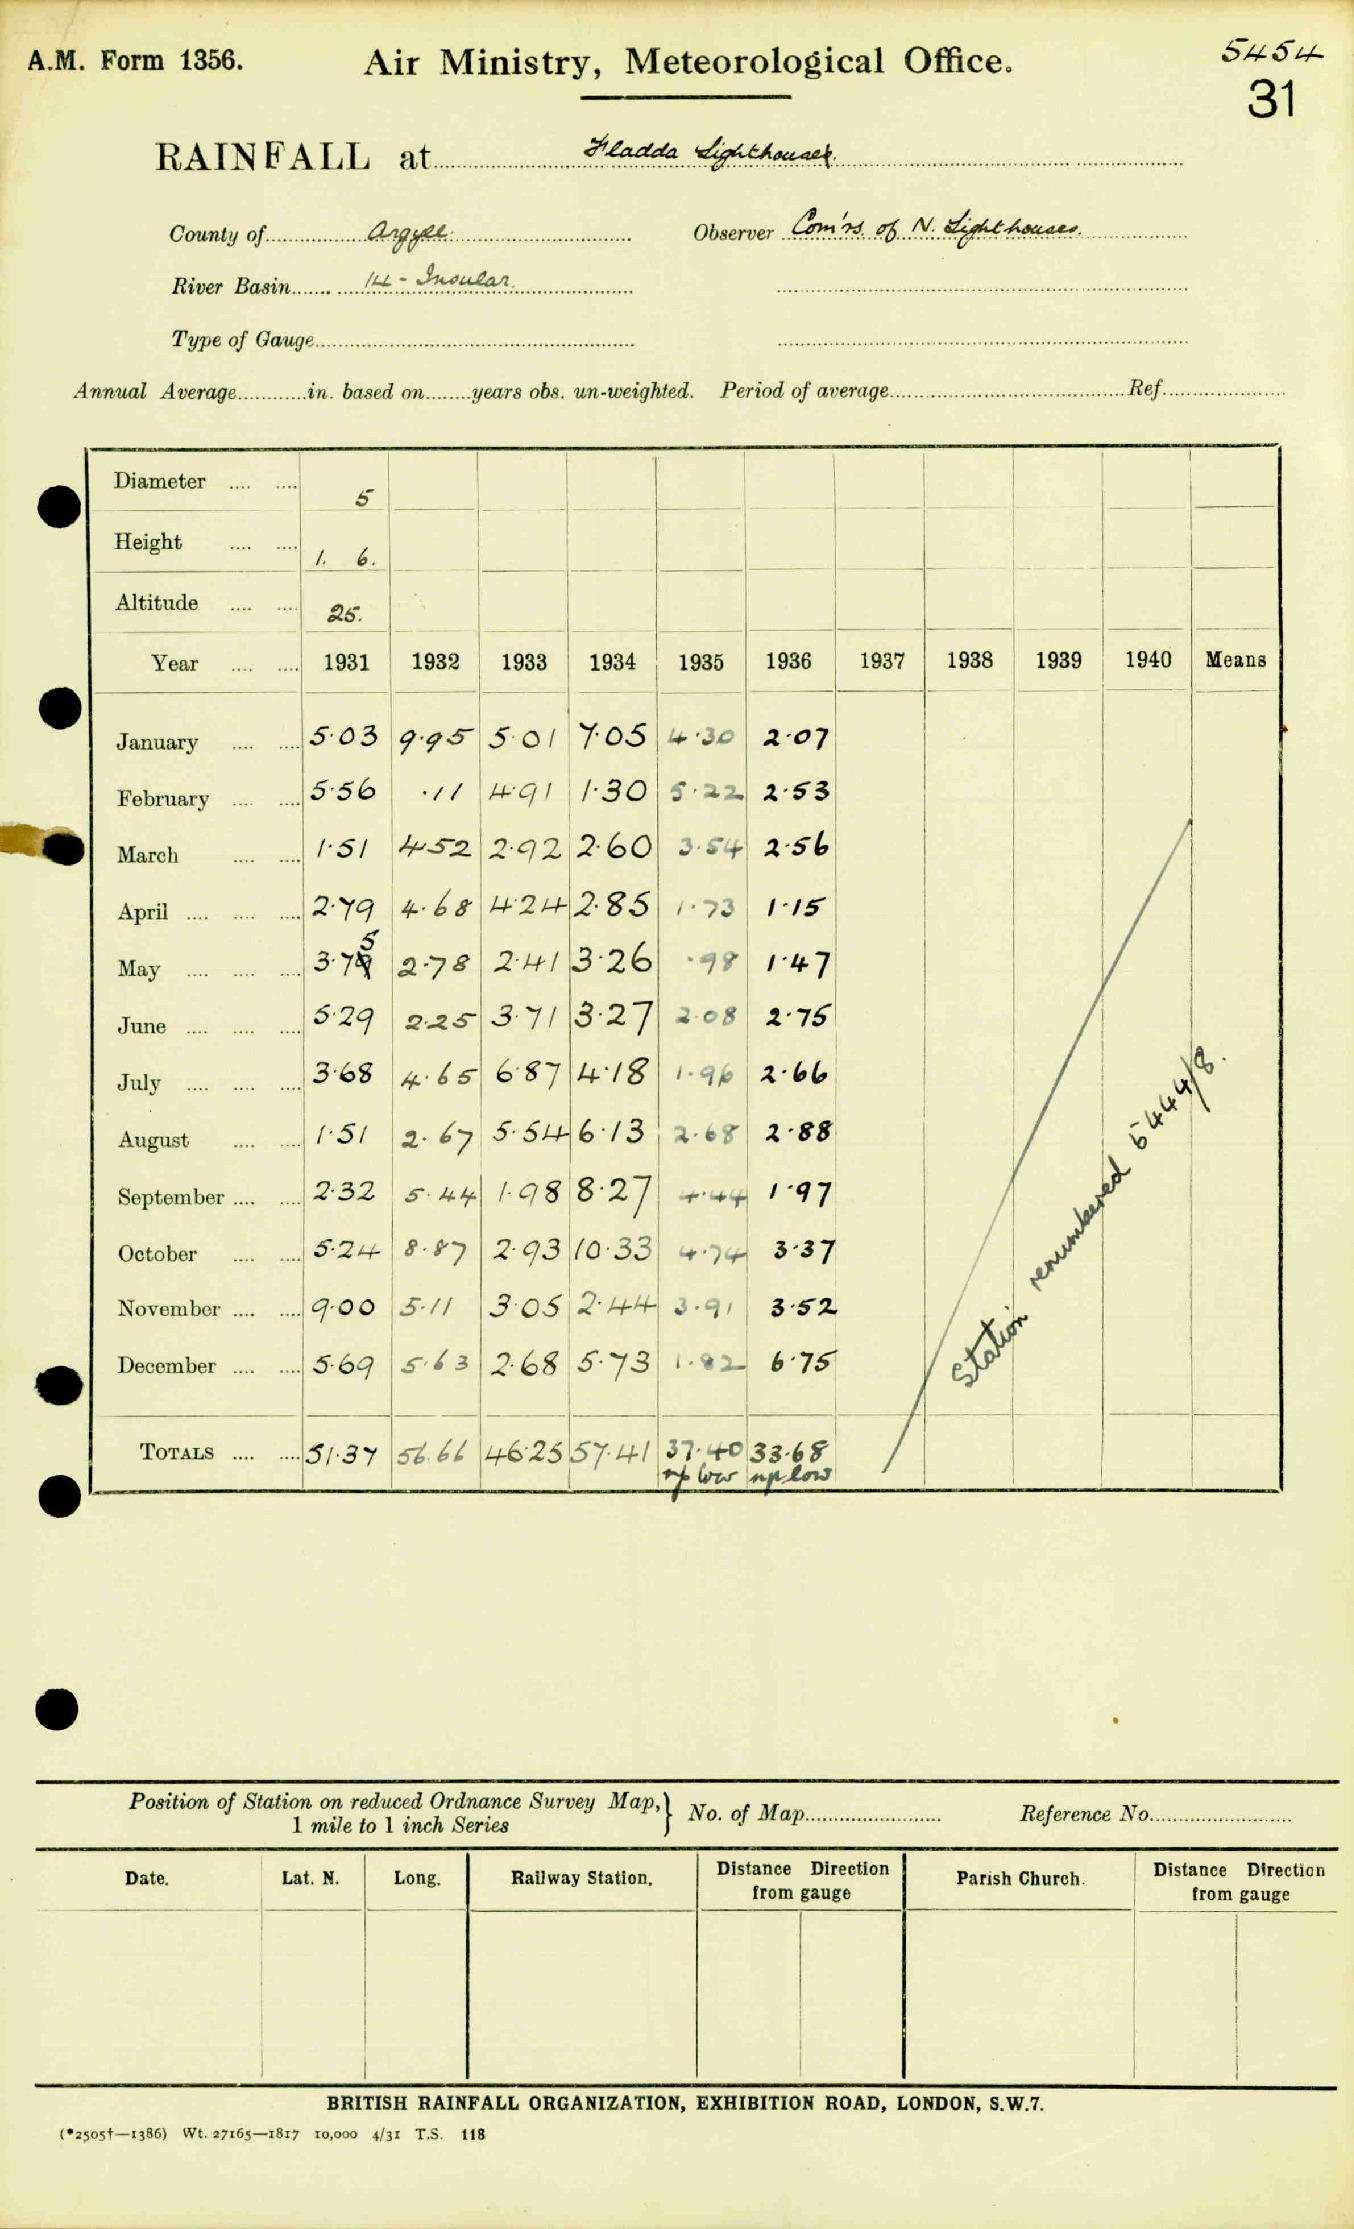 A.M. Form 1356. Air Ministry, Meteorological Office. 5454
31
RAINFALL at Fladda Lighthouse.
County of Argyll. Observer Com'rs. of N. Lighthouses.
River Basin 14 - Insular.
Type of Gauge
Annual Average in. based on years obs. un-weighted. Period of average Ref.
Diameter 5
Height 1. 6.
Altitude 25.
Year 1931 1932 1933 1934 1935 1936 1937 1938 1939 1940 Means
January 5·03 9·95 5·01 7·05 4·30 2·07
February 5·56 ·11 4·91 1·30 5·22 2·53
March 1·51 4·52 2·92 2·60 3·54 2·56
April 2·79 4·68 4·24 2·85 1·73 1·15
May 3·75 2·78 2·41 3·26 ·98 1·47
June 5·29 2·25 3·71 3·27 2·08 2·75
July 3·68 4·65 6·87 4·18 1·96 2·66
August 1·51 2·67 5·54 6·13 2·68 2·88
September 2·32 5·44 1·98 8·27 4·44 1·97
October 5·24 8·87 2·93 10·33 4·74 3·37
November 9·00 5·11 3·05 2·44 3·91 3·52
December 5·69 5·63 2·68 5·73 1·82 6·75
Station renumbered 5444/8.
TOTALS 51·37 56·66 46·25 57·41 37·40 33·68
np low np low
Position of Station on reduced Ordnance Survey Map,} No. of Map Reference No.
1 mile to 1 inch Series
Date. Lat. N. Long. Railway Station. Distance Direction from gauge Parish Church. Distance Direction from gauge
BRITISH RAINFALL ORGANIZATION, EXHIBITION ROAD, LONDON, S.W.7.
(*2505†—1386) Wt. 27165—1817 10,000 4/31 T.S. 118